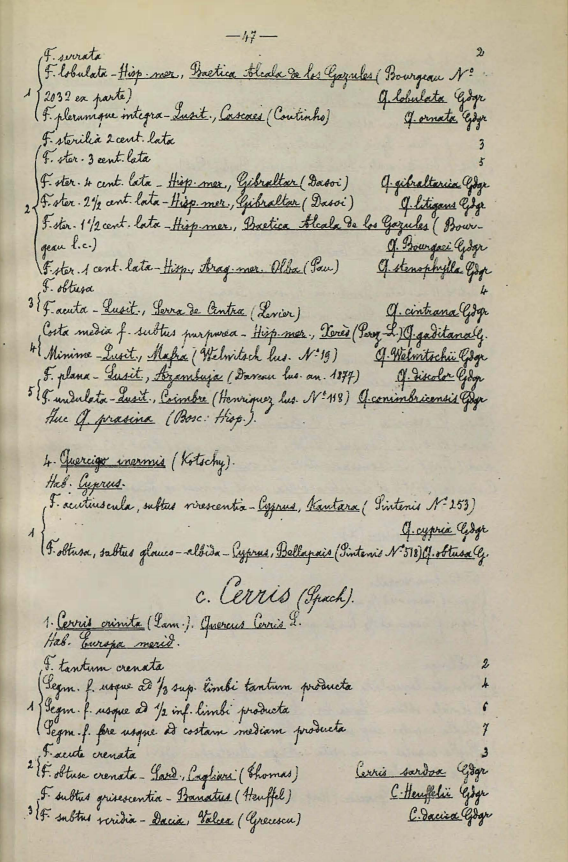 —47—
F. serrata 2
F. lobulata - Hisp. mer., Baetica Alcala de los Gazules (Bourgeau Nº
1 2032 ex parte) Q. lobulata Gdgr
F. plerumque integra - Lusit., Cascaes (Coutinho) Q. ornata Gdgr
F. sterilia 2 cent. lata 3
F. ster. 3 cent. lata 5
F. ster. 4 cent. lata - Hisp. mer., Gibraltar (Dasoi) Q. gibraltarica Gdgr
2 F. ster. 2½ cent. lata - Hisp. mer., Gibraltar (Dasoi) Q. litigans Gdgr
F. ster. 1½ cent. lata - Hisp. mer., Baetica Alcala de los Gazules (Bour-
geau l.c.) Q. Bourgaei Gdgr
F. ster. 1 cent. lata - Hisp., Arag. mer. Olba (Pau) Q. stenophylla Gdgr
F. obtusa 4
3 F. acuta - Lusit., Serra de Cintra (Levier) Q. cintrana Gdgr
Costa media f. subtus purpurea - Hisp. mer., Xerès (Perez L.) Q. gaditana G.
4 Minime - Lusit., Mafra (Welwitsch lus. Nº 19) Q. Welwitschii Gdgr
F. plana - Lusit., Azambuja (Daveau lus. an. 1877) Q. discolor Gdgr
5 F. undulata - Lusit., Coimbre (Henriquez lus. Nº 118) Q. conimbricensis Gdgr
Huc Q. prasina (Bosc: Hisp.).
4. Quercigo inermis (Kotschy).
Hab. Cyprus.
F. acutiuscula, subtus virescentia - Cyprus, Kantara (Sintenis Nº 253)
1 Q. cypria Gdgr
F. obtusa, subtus glauco-albida - Cyprus, Bellapais (Sintenis Nº 518) Q. obtusa G.
c. Cerris (Spach).
1. Cerris crinita (Lam.). Quercus Cerris L.
Hab. Europa merid.
F. tantum crenata 2
Segm. f. usque ad ⅓ sup. limbi tantum producta 4
1 Segm. f. usque ad ½ inf. limbi producta 6
Segm. f. fere usque ad costam mediam producta 7
F. acute crenata 3
2 F. obtuse crenata - Sard., Cagliari (Thomas) Cerris sardoa Gdgr
F. subtus grisescentia - Banatus (Heuffel) C. Heuffelii Gdgr
3 F. subtus viridia - Dacia, Valcea (Grecescu) C. dacica Gdgr